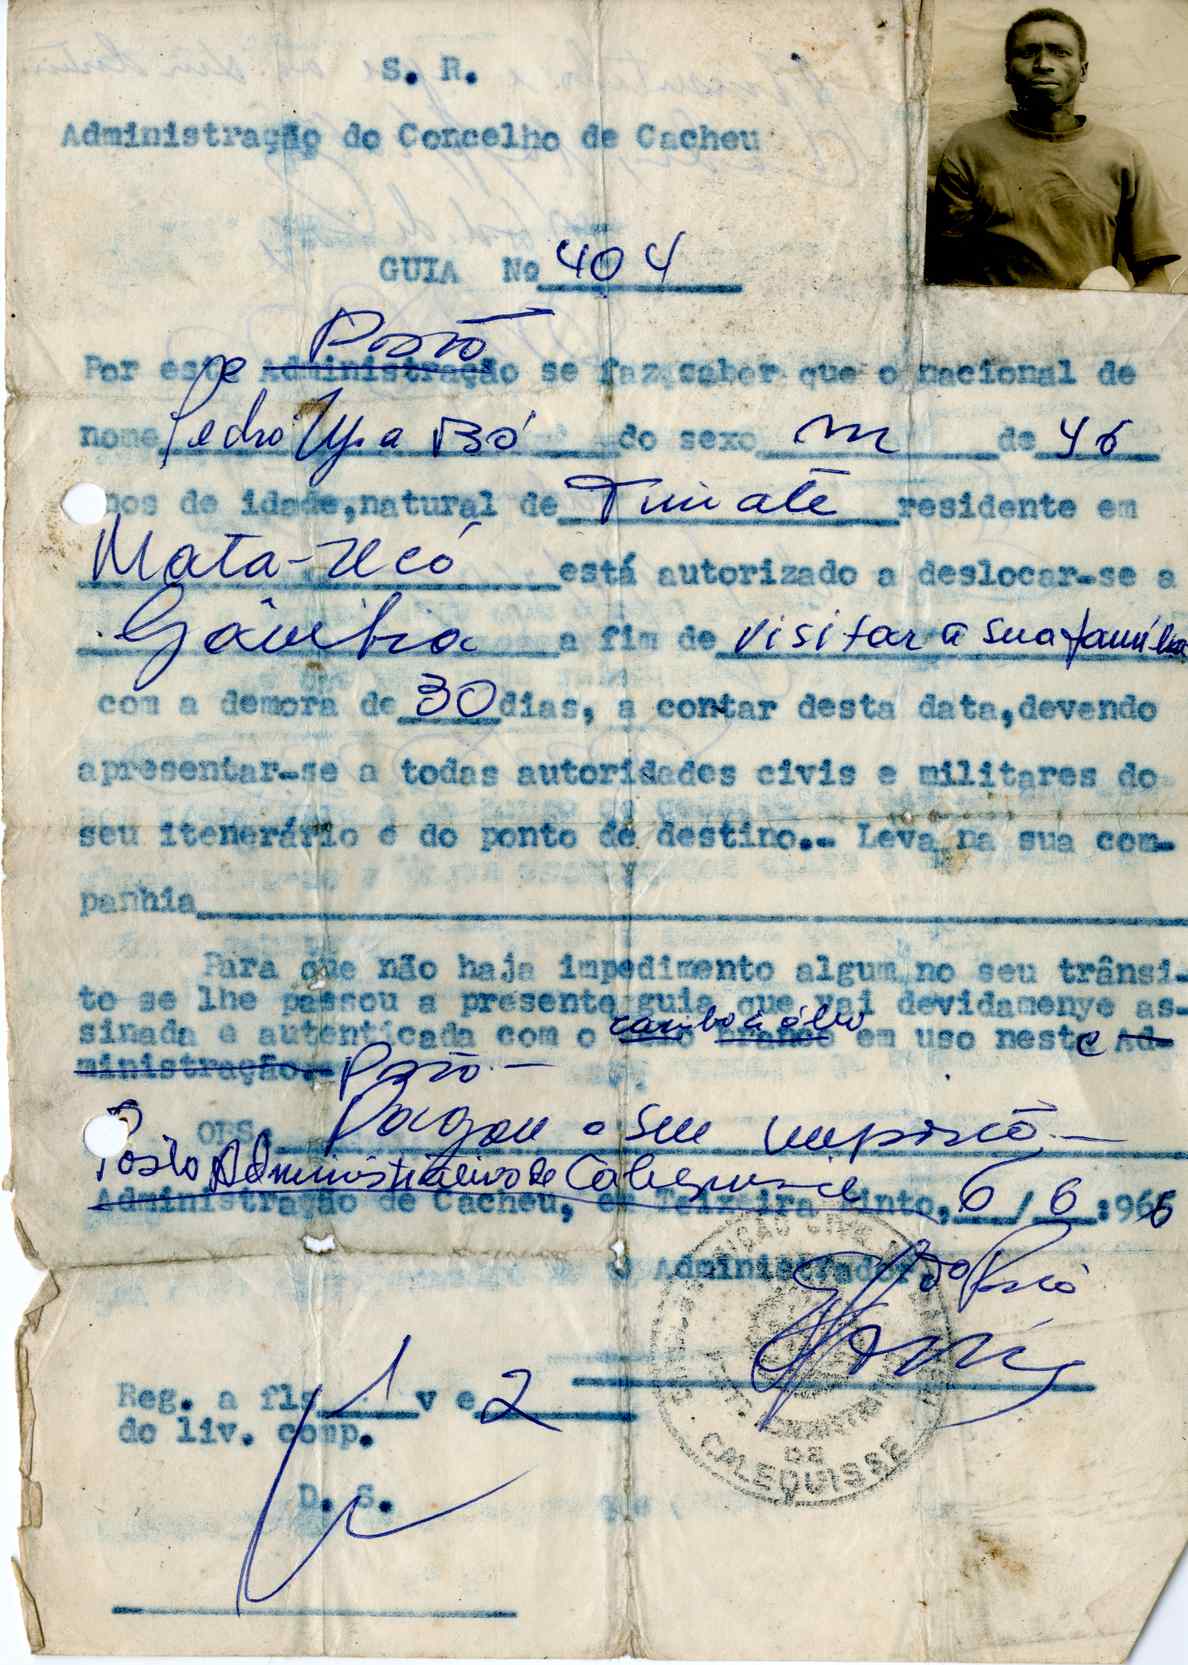 S. R.
Administração do Concelho de Cacheu
GUIA Nº 404
Posto
Por este Administração se faz saber que o nacional de
nome Pedro Upa Bó do sexo m de 46
nos de idade,natural de Timate residente em
Mata-Ucó está autorizado a deslocar-se a
Gâmbia a fim de visitar a sua família
com a demora de 30 dias, a contar desta data,devendo
apresentar-se a todas autoridades civis e militares do
seu itenerário e do ponto de destino.- Leva na sua com-
panhia
Para que não haja impedimento algum no seu trânsi-
to se lhe passou a presente guia que vai devidamenye as-
carimbo a óleo
sinada e autenticada com o branco em uso neste Ad-
ministração.- Posto.-
OBS. Pagou o seu imposto.-
Posto Administrativo de Calequisse
Administração de Cacheu, em Teixeira Pinto, 6/6:966
O Administrador, do Posto
Reg. a fls 1 v e 2
do liv. comp.
D. S.
DE
CALEQUISSE